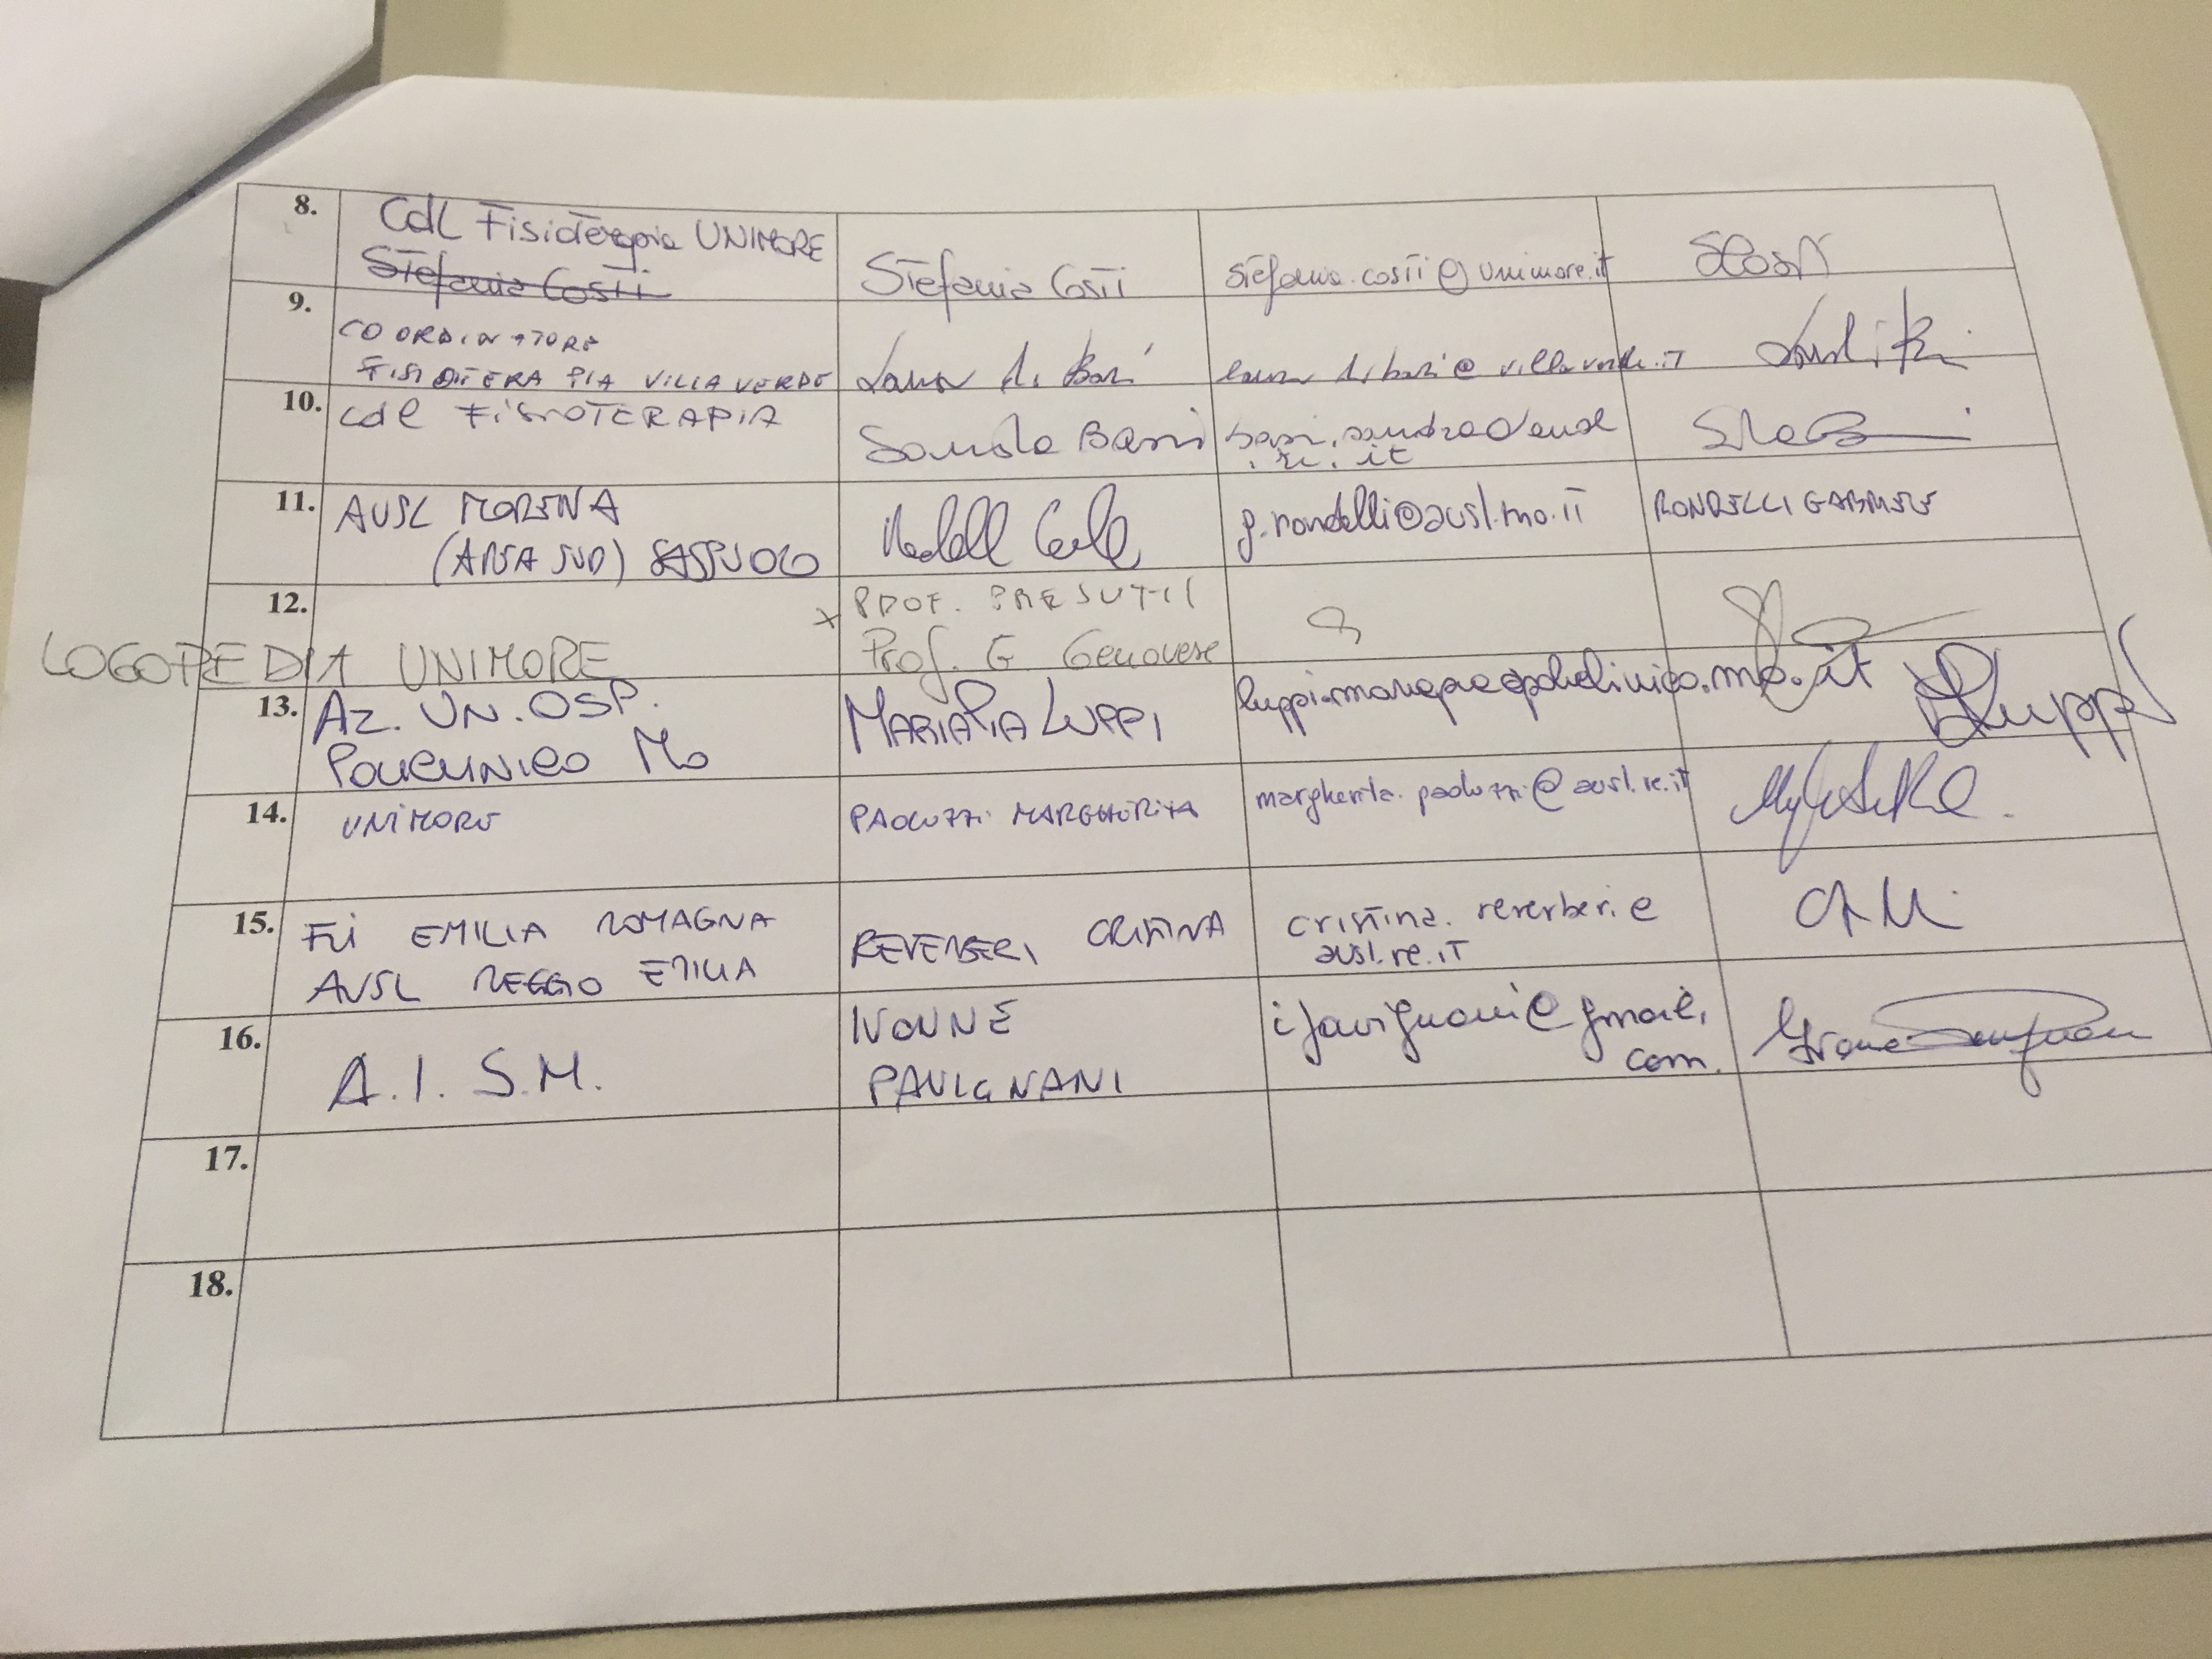 8.
CdL Fisioterapia UNIMORE
Stefania Costi
Stefania Costi
stefania.costi@unimore.it
SCosti
9.
COORDINATORE
FISIOTERAPIA VILLA VERDE
Laura di Bari
laura.dibari@villaverde.it
10.
Cdl FISIOTERAPIA
Sandra Bassi
bassi.sandra@ausl
.re.it
11.
AUSL MODENA
(AREA SUD) SASSUOLO
g.rondelli@ausl.mo.it
RONDELLI GABRIELE
12.
LOGOPEDIA UNIMORE
x PROF. PRESUTTI
Prof. E Genovese
13.
AZ. UN. OSP.
POLICLINICO Mo
MARIAPIA LUPPI
luppi.mariapia@policlinico.mo.it
Luppi
14.
UNIMORE
PAOLUZZI MARGHERITA
margherita.paoluzzi@ausl.re.it
15.
FLI EMILIA ROMAGNA
AUSL REGGIO EMILIA
REVERBERI CRISTINA
cristina.reverberi@
ausl.re.it
16.
A.I.S.M.
IVONNE
PAVIGNANI
ipavignani@gmail.
com.
17.
18.